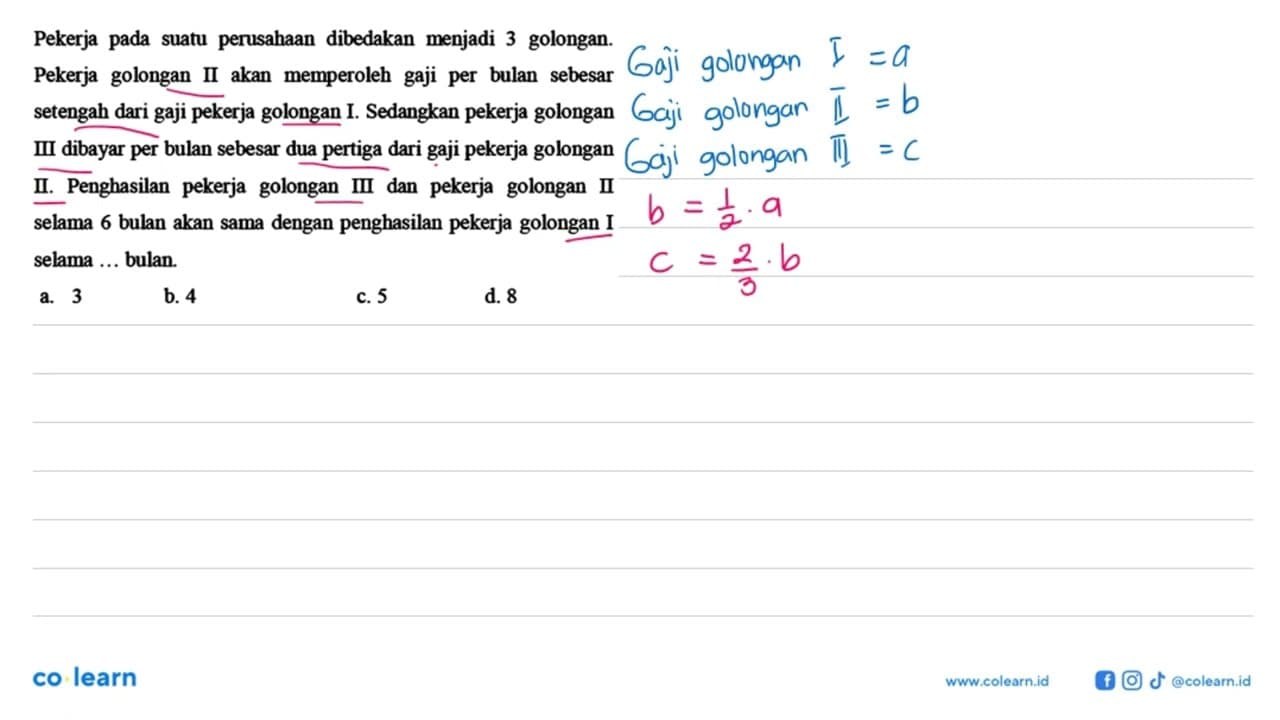 Pekerja pada suatu perusahaan dibedakan menjadi 3 golongan.
Pekerja golongan II akan memperoleh gaji per bulan sebesar
setengah dari gaji pekerja golongan I. Sedangkan pekerja golongan
III dibayar per bulan sebesar dua pertiga dari gaji pekerja golongan
II. Penghasilan pekerja golongan III dan pekerja golongan II
selama 6 bulan akan sama dengan penghasilan pekerja golongan I
selama ... bulan.
a. 3 b. 4 c. 5 d. 8
Gaji golongan I = a
Gaji golongan II = b
Gaji golongan III = c
b = 1/2 . a
c = 2/3 . b
co learn
www.colearn.id @colearn.id